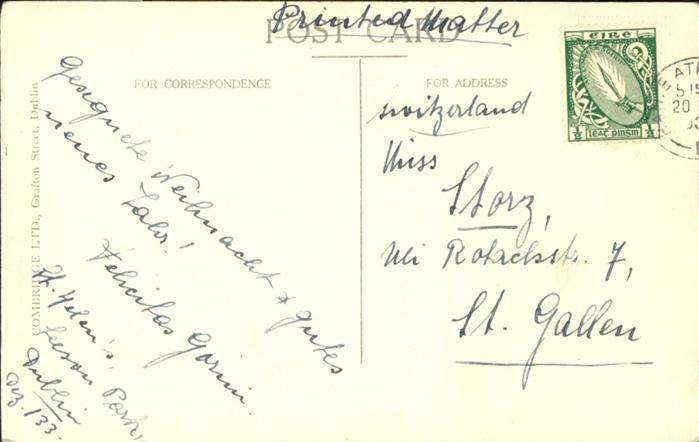 Printed Matter
POST CARD
FOR CORRESPONDENCE
COMBRIDGE LTD., Grafton Street, Dublin
Gesegnete Weihnacht & gutes
neues Jahr!
Felicitas
St. Helen's,
Leeson Park,
Dublin
Dez. 133.
FOR ADDRESS
Switzerland
Miss
Storz,
Uli Rotachstr. 7,
St. Gallen
éIRe
1/2 leat pinsin 1/2